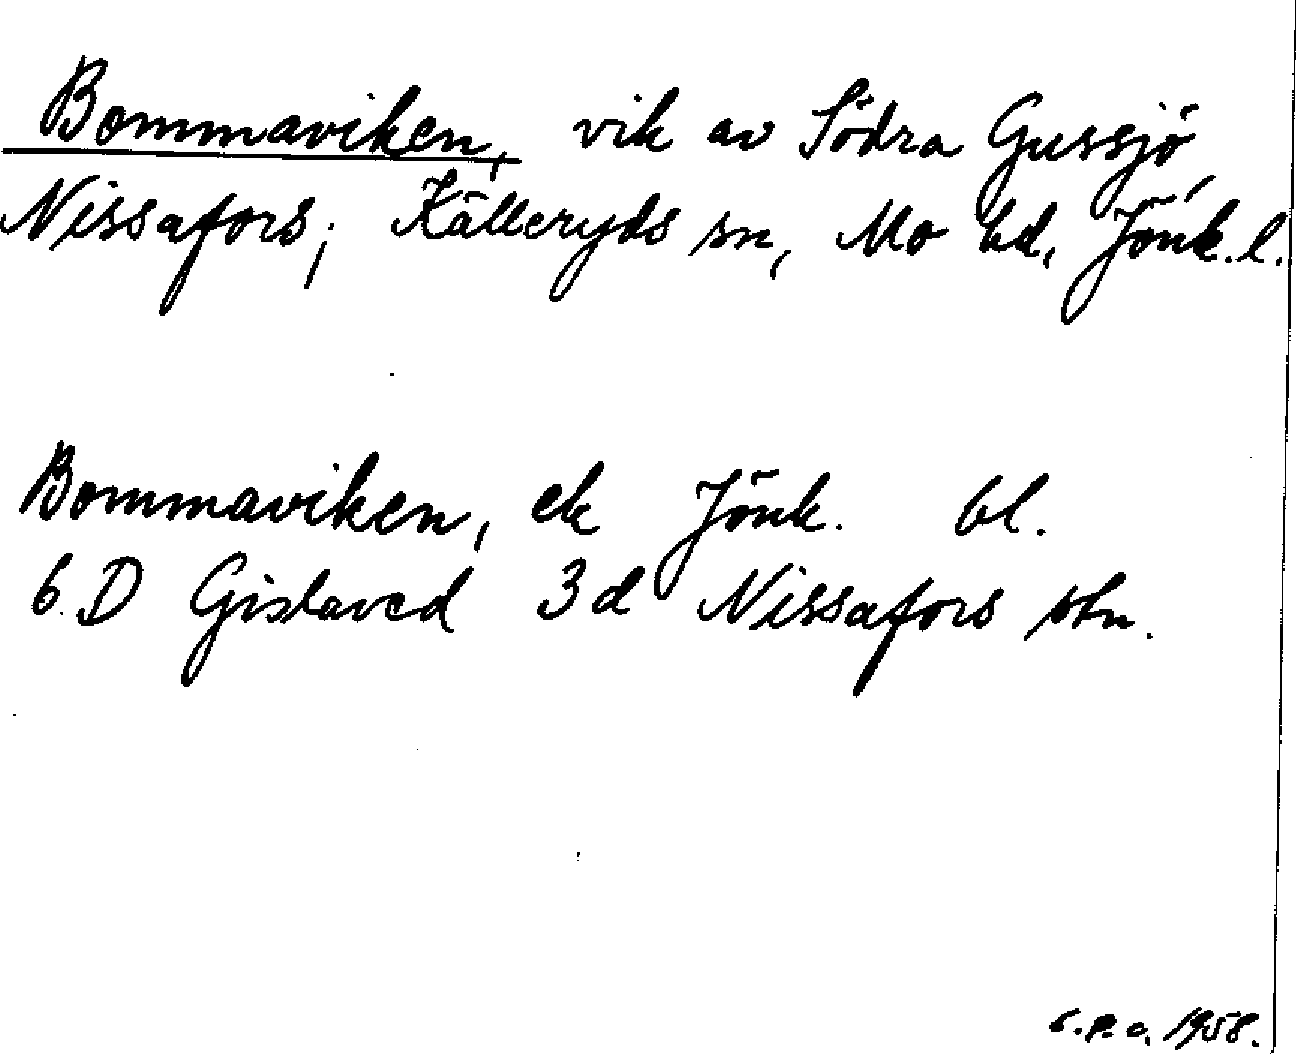 Bommaviken, vik av Södra Gussjö,
Nissafors; Källeryds sn, Mo hd, Jönk. l.
Bommaviken, ek Jönk. bl.
6.D Gislaved 3d Nissafors stn.
1958.